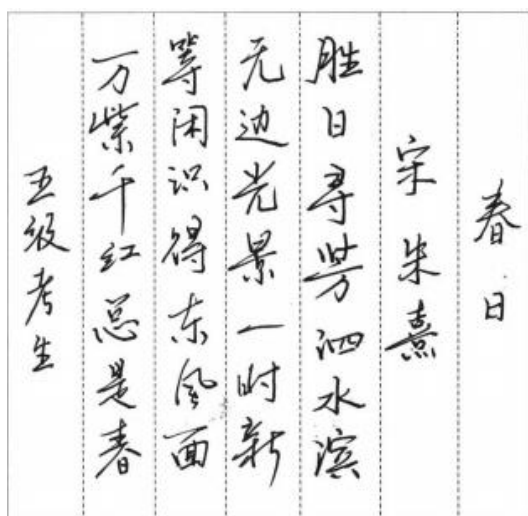 春日
宋 朱熹
胜日寻芳泗水滨
无边光景一时新
等闲识得东风面
万紫千红总是春
五级考生